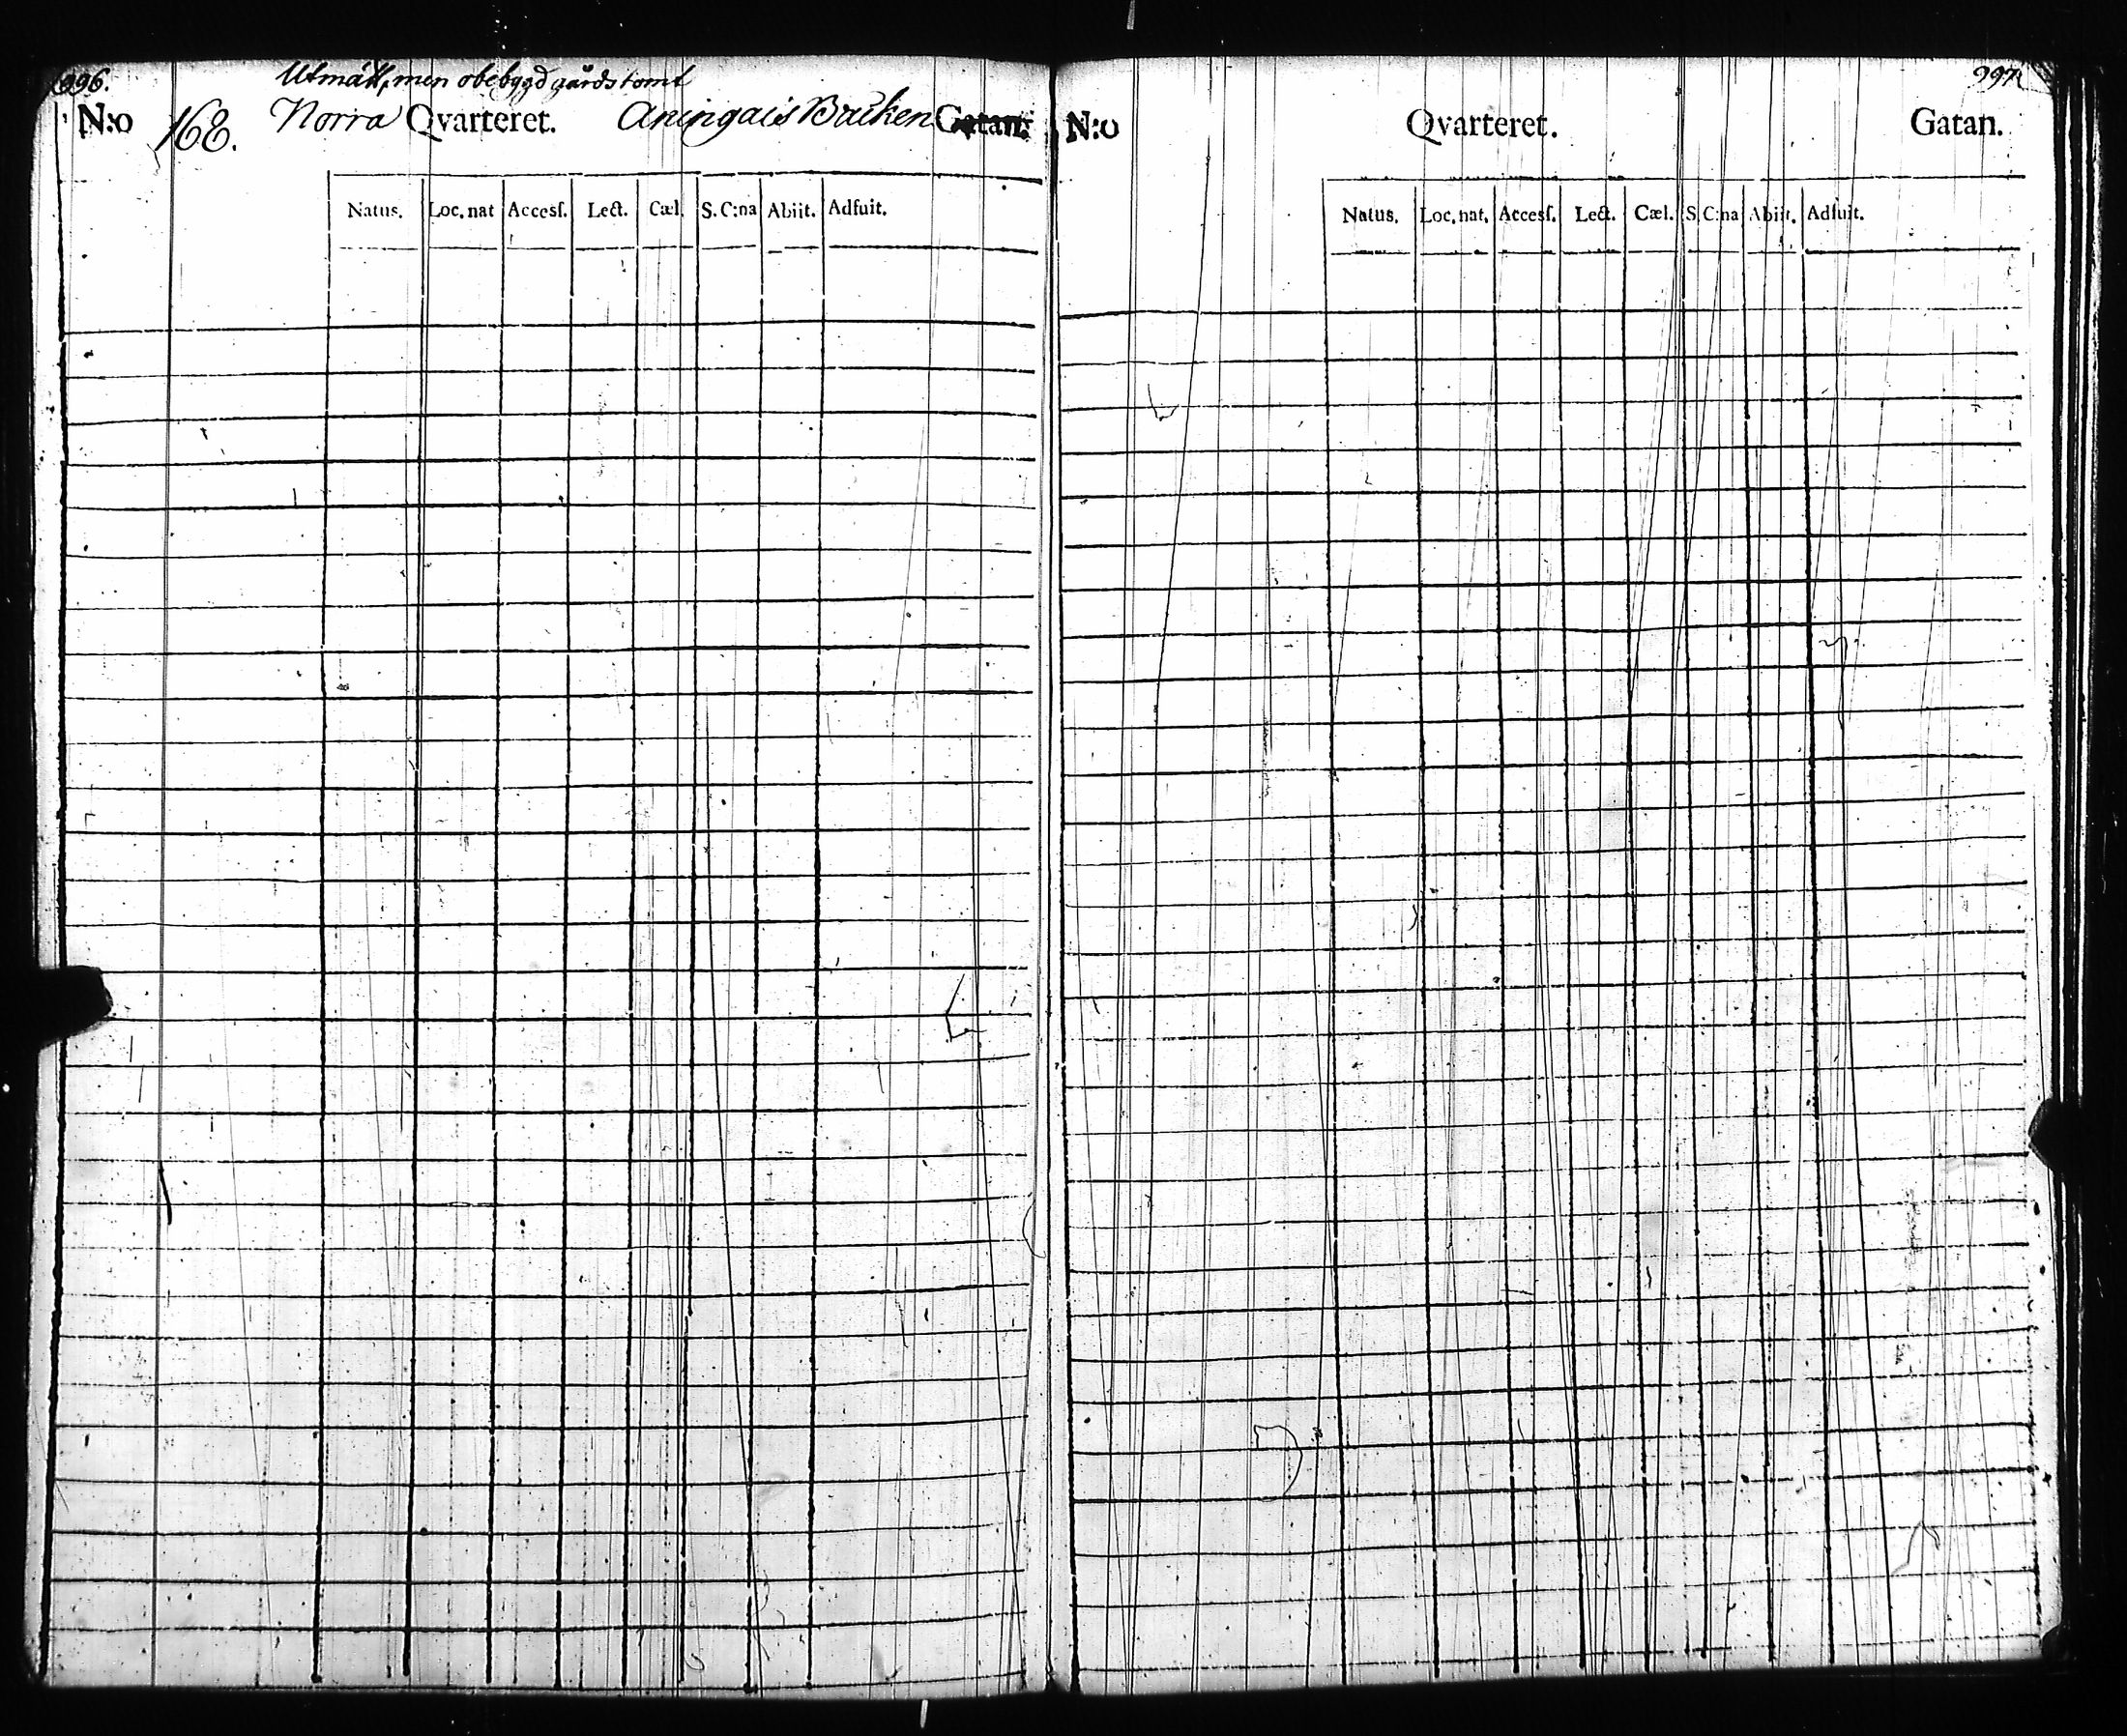 996.
Utmätt, men obebygd gårdstomt
N:o 168. Norra Qvarteret. Aningais Backen Gatan.
Natus. Loc. nat Accesſ. Lect. Cæl. S. C:na Abiit. Adfuit.
997.
N:o Qvarteret. Gatan.
Natus. Loc. nat. Accesſ. Lect. Cæl. S. C:na Abiit. Adfuit.